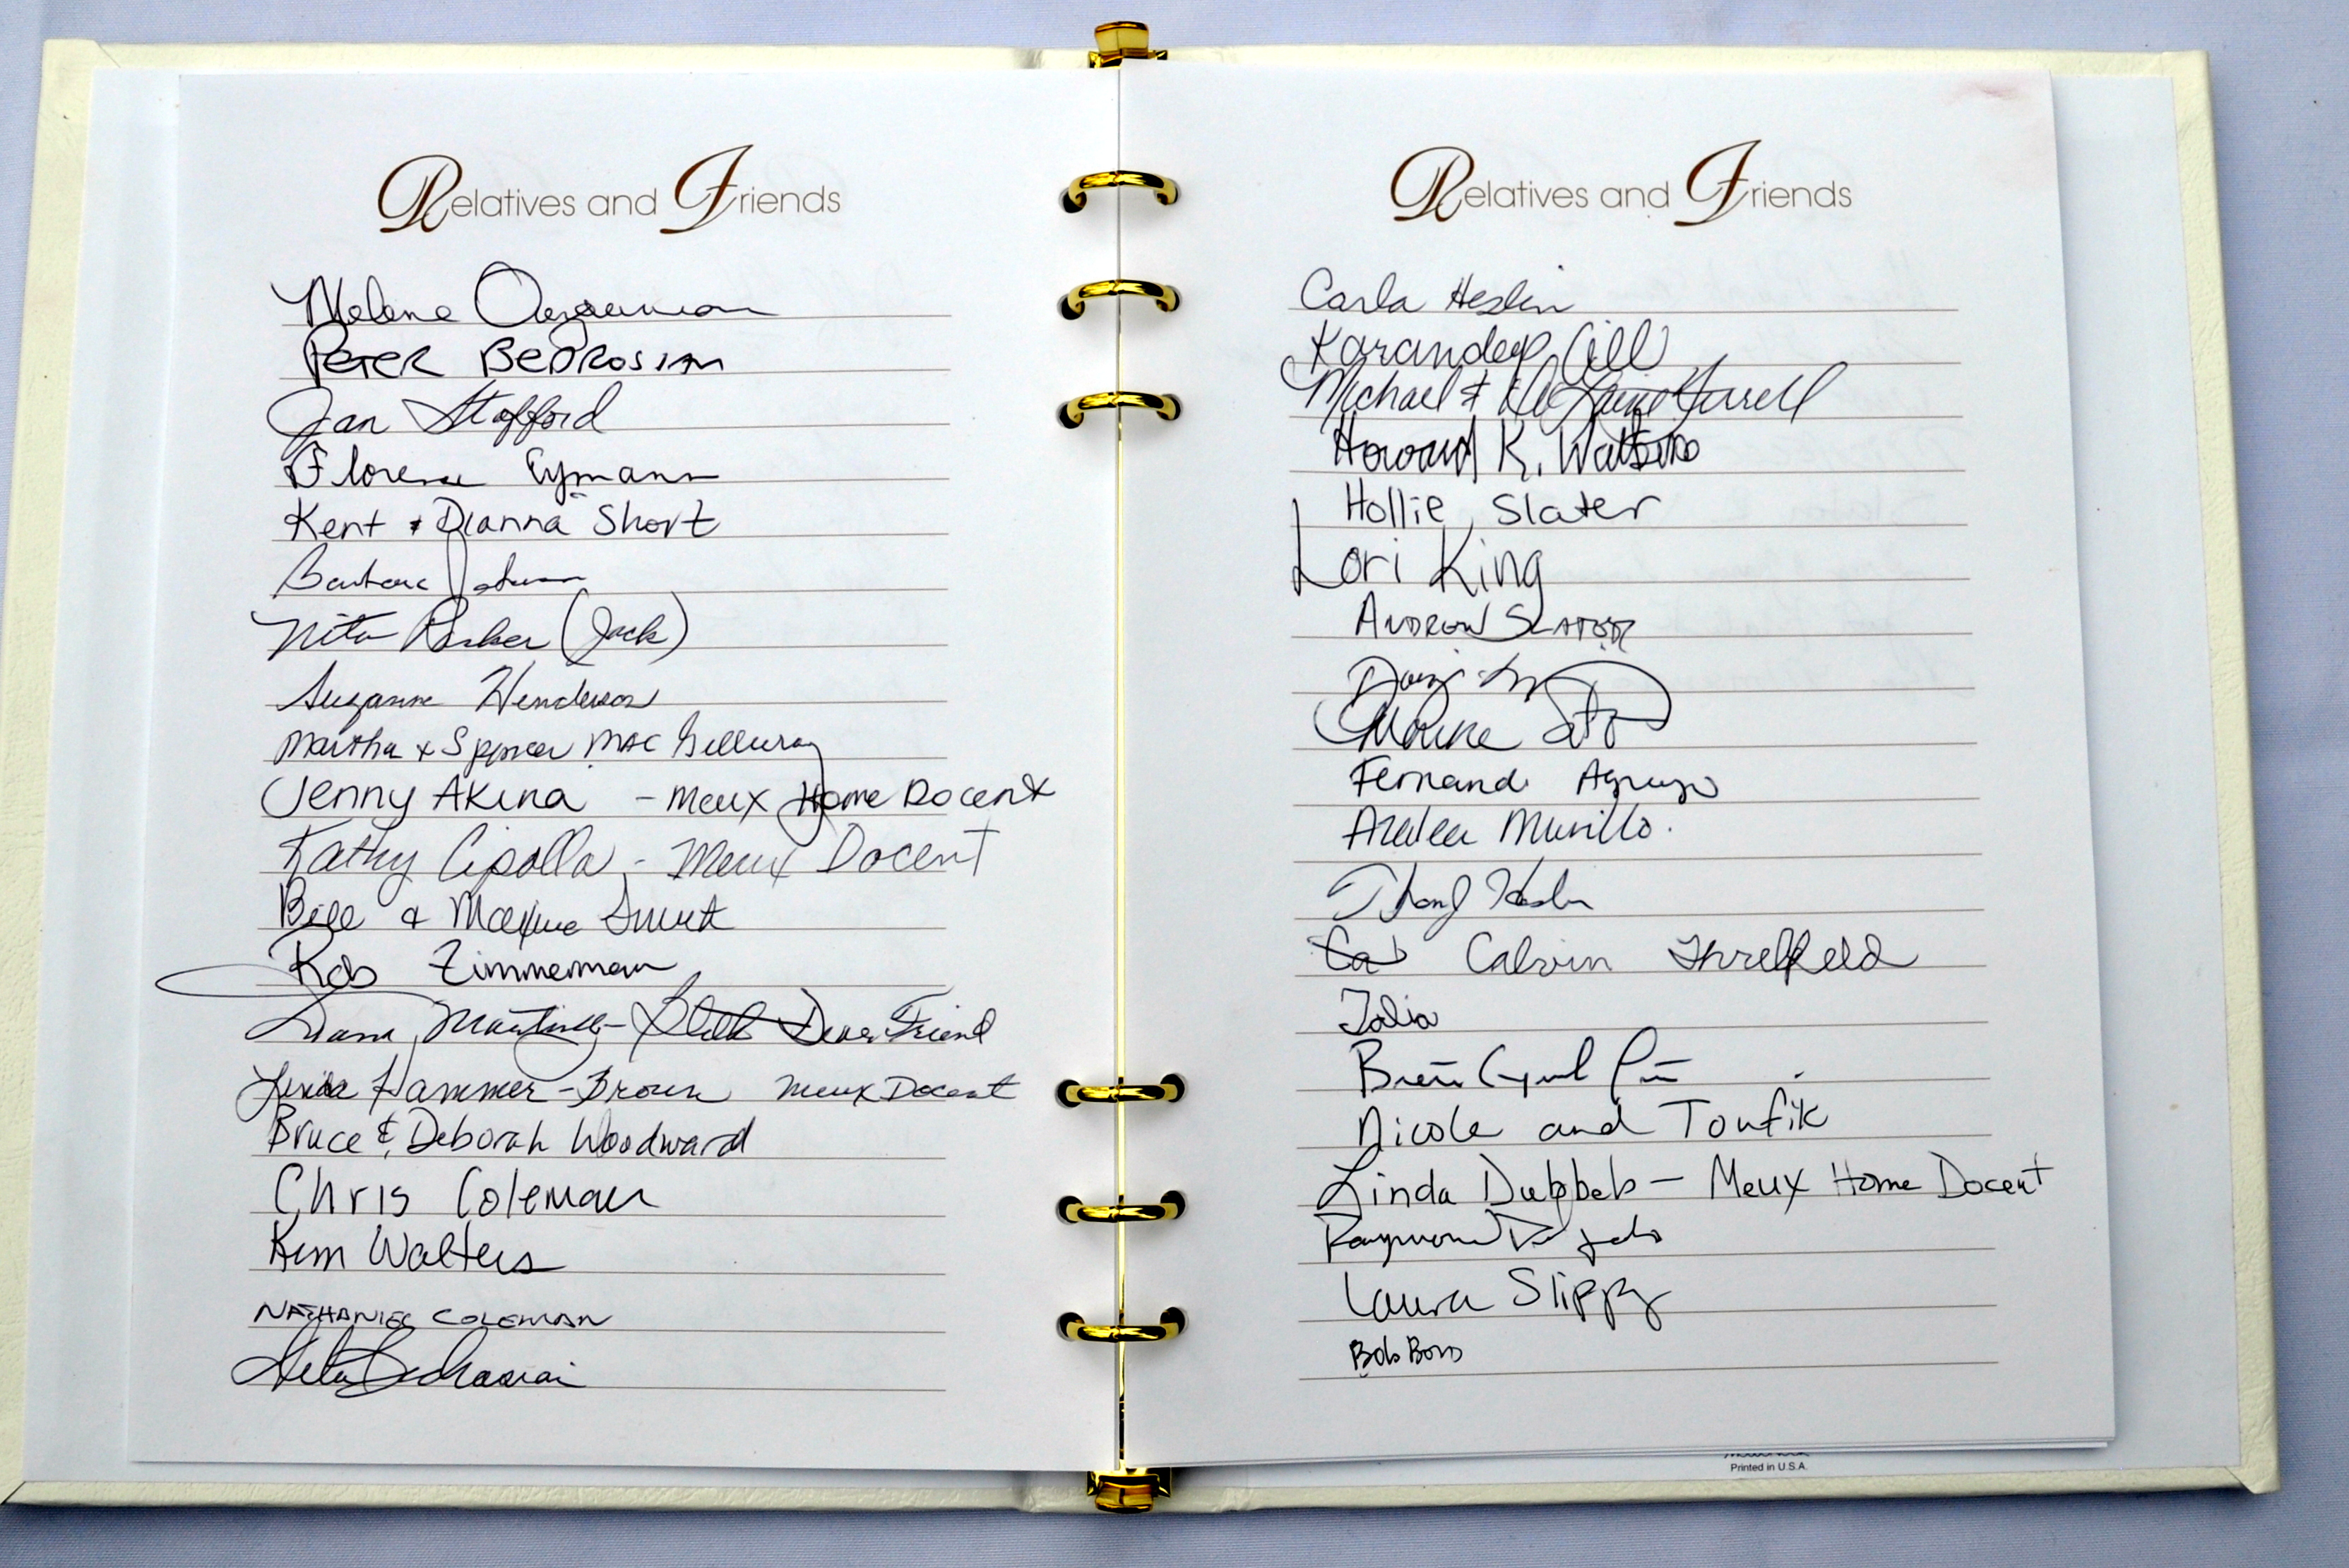 Relatives and Friends
Melene
PETER BEDROSIAN
Jan Stafford
Florence Eymann
Kent & Dianna Short
Barbara
Nita Parker (Jack)
Suzanne Henderson
Martha & Spencer Mac
Jenny Akina - Meux Home Docent
Kathy Cipolla - Meux Docent
Bill & Maxine Smith
Rob Zimmerman
Friend
Linda Hammer-Brown Meux Docent
Bruce & Deborah Woodward
Chris Coleman
Kim Walters
NATHANIEL COLEMAN
Relatives and Friends
Carla Heslin
Karandeep Gill
Michael &
Howard K. Watkins
Hollie Slater
Lori King
ANDREW SLATER
Fernand
Azalea Murillo.
Heslin
Calvin Threlfeld
Talia
Nicole and Toufik
Linda Dubbels - Meux Home Docent
Raymond
Laura Slippy
Bob
Printed in U.S.A.